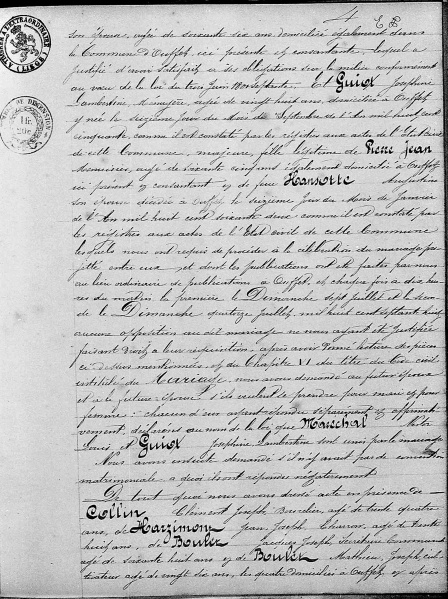 4
son épouse, agée de soixante six ans domiciliée également dans
la Commune d'Ouffet, ici présente et consentante, lequel a
justifié d'avoir satisfait à des obligations sur la milice conformément
au vœu de la loi du trois juin Et Guiot Joséphine
Lambertine, agée de vingt huit ans, domiciliée à Ouffet
y née le seizième jour du Mois de Septembre de l'An mil huit cent
cinquante, comme il est constaté par les registres aux actes de l'Etat civil
de cette Commune, majeure, fille légitime de Pierre Jean
Menuisier, agé de soixante cinq ans également domicilié à Ouffet
ici présent et consentant et de feue Hansotte
son épouse décédée à Ouffet le seizième jour du Mois de Janvier
de l'An mil huit cent soixante deux comme il est constaté par
les registres aux actes de l'Etat civil de cette Commune
lesquels nous ont requis de procéder à la célébration du mariage pro
jetté entre eux et dont les publications ont été faites par nous
au lieu ordinaire de publications à Ouffet, et chaque fois à dix heu
res du matin la première le Dimanche sept juillet et la secon
de le Dimanche quatorze juillet, mil huit cent septante huit
aucune opposition au dit mariage ne nous ayant été signifiée
faisant droit à leur réquisition, après avoir donné lecture des pièces
ci dessus mentionnées, et du Chapitre VI du titre du Code civil
intitulé du Mariage, nous avons demandé au futur époux
et à la future épouse s'ils veulent se prendre pour mari et pour
femme : chacun d'eux ayant répondu séparément et affirmati
vement, déclarons au nom de la loi que Maréchal Victor
Louis et Guiot Joséphine Lambertine sont unis par le mariage
Nous avons ensuite demandé s'il n'y avait pas de convention
matrimoniale à quoi ils ont répondu négativement
De tout quoi nous avons dressé acte en présence de
Collin Clément Joseph Boucher, agé de trente quatre
ans, de Harzimont Jean Joseph, Charron, agé de trente
huit ans, de Boulet Jacques Joseph, Secrétaire Communal
agé de soixante huit ans et de Boulet Mathieu, Joseph, cul
tivateur agé de vingt six ans, les quatre domiciliés à Ouffet, et après